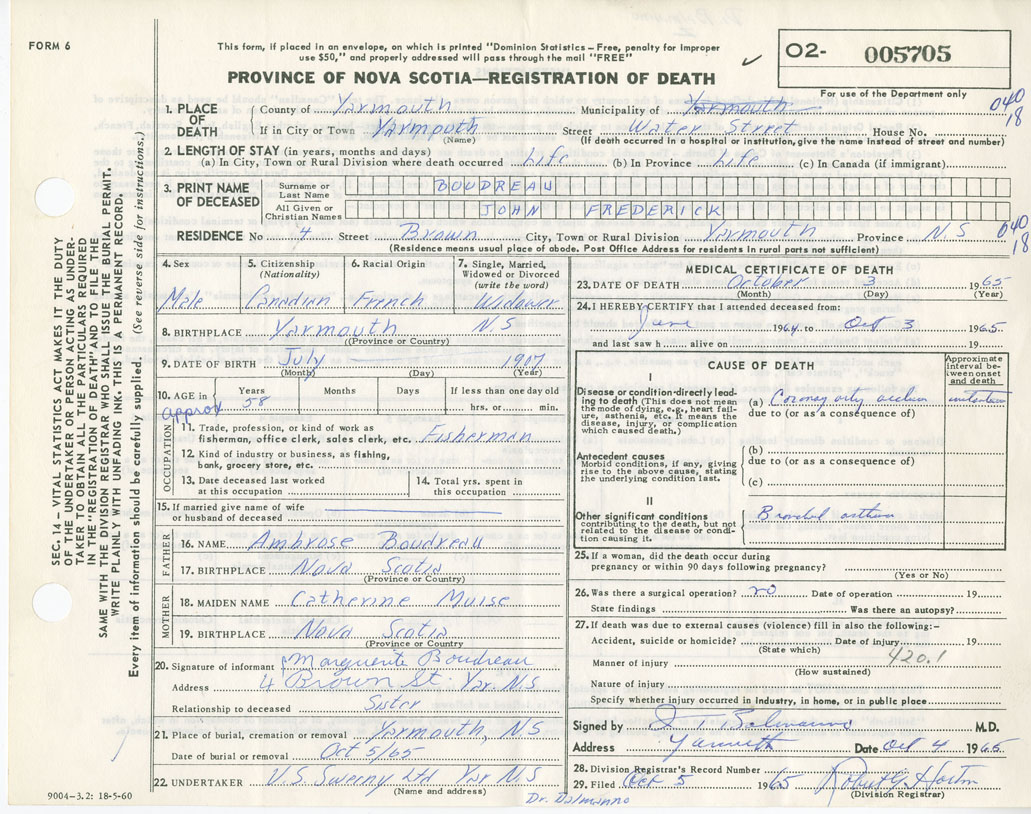 FORM 6
This form, if placed in an envelope, on which is printed "Dominion Statistics – Free, penalty for improper
use $50," and properly addressed will pass through the mail "FREE"
O2- 005705
For use of the Department only
PROVINCE OF NOVA SCOTIA—REGISTRATION OF DEATH
040
18
1. PLACE OF DEATH County of Yarmouth Municipality of Yarmouth
If in City or Town Yarmouth (Name) Street Water Street House No.
(If death occurred in a hospital or institution, give the name instead of street and number)
2. LENGTH OF STAY (in years, months and days)
(a) In City, Town or Rural Division where death occurred Life (b) In Province Life (c) In Canada (if immigrant)
3. PRINT NAME OF DECEASED
Surname or Last Name BOUDREAU
All Given or Christian Names JOHN FREDERICK
RESIDENCE No 4 Street Brown City, Town or Rural Division Yarmouth Province N.S
040
18
(Residence means usual place of abode. Post Office Address for residents in rural parts not sufficient)
SEC. 14 – VITAL STATISTICS ACT MAKES IT THE DUTY
OF THE UNDERTAKER OR PERSON ACTING AS UNDER-
TAKER TO OBTAIN ALL THE PARTICULARS REQUIRED
IN THE "REGISTRATION OF DEATH" AND TO FILE THE
SAME WITH THE DIVISION REGISTRAR WHO SHALL ISSUE THE BURIAL PERMIT.
WRITE PLAINLY WITH UNFADING INK. THIS IS A PERMANENT RECORD.
Every item of information should be carefully supplied. (See reverse side for instructions.)
4. Sex Male
5. Citizenship (Nationality) Canadian
6. Racial Origin French
7. Single, Married, Widowed or Divorced (write the word) Widower
8. BIRTHPLACE Yarmouth N.S
(Province or Country)
9. DATE OF BIRTH July 1907
(Month) (Day) (Year)
10. AGE in approx Years 58 Months Days If less than one day old
hrs. or min.
OCCUPATION
11. Trade, profession, or kind of work as
fisherman, office clerk, sales clerk, etc. Fisherman
12. Kind of industry or business, as fishing,
bank, grocery store, etc.
13. Date deceased last worked
at this occupation
14. Total yrs. spent in
this occupation
15. If married give name of wife
or husband of deceased
FATHER
16. NAME Ambrose Boudreau
17. BIRTHPLACE Nova Scotia
(Province or Country)
MOTHER
18. MAIDEN NAME Catherine Muise
19. BIRTHPLACE Nova Scotia
(Province or Country)
20. Signature of informant Marguerite Boudreau
Address 4 Brown St. Yar. N.S
Relationship to deceased Sister
21. Place of burial, cremation or removal Yarmouth, NS
Date of burial or removal Oct 5/65
22. UNDERTAKER V.S. Sweeny Ltd Yar N.S
(Name and address)
9004-3.2: 18-5-60
MEDICAL CERTIFICATE OF DEATH
23. DATE OF DEATH October 3 1965
(Month) (Day) (Year)
24. I HEREBY CERTIFY that I attended deceased from:
June 1964 to Oct 3 1965
and last saw h alive on 19
CAUSE OF DEATH
Approximate interval between onset and death
I
Disease or condition directly lead-
ing to death (This does not mean
the mode of dying, e.g., heart failure,
asthenia, etc. It means the
disease, injury, or complication
which caused death.)
(a) Coronary
due to (or as a consequence of)
Antecedent causes
Morbid conditions, if any, giving
rise to the above cause, stating
the underlying condition last.
(b)
due to (or as a consequence of)
(c)
II
Other significant conditions
contributing to the death, but not
related to the disease or condi-
tion causing it.
Bronchial asthma
25. If a woman, did the death occur during
pregnancy or within 90 days following pregnancy?
(Yes or No)
26. Was there a surgical operation? no Date of operation 19
State findings Was there an autopsy?
27. If death was due to external causes (violence) fill in also the following:–
Accident, suicide or homicide? Date of injury 19
(State which)
420.1
Manner of injury
(How sustained)
Nature of injury
Specify whether injury occurred in industry, in home, or in public place
Signed by M.D.
Address Yarmouth Date Oct 4 1965
28. Division Registrar's Record Number
29. Filed Oct 5 1965 Robert G Horton
(Division Registrar)